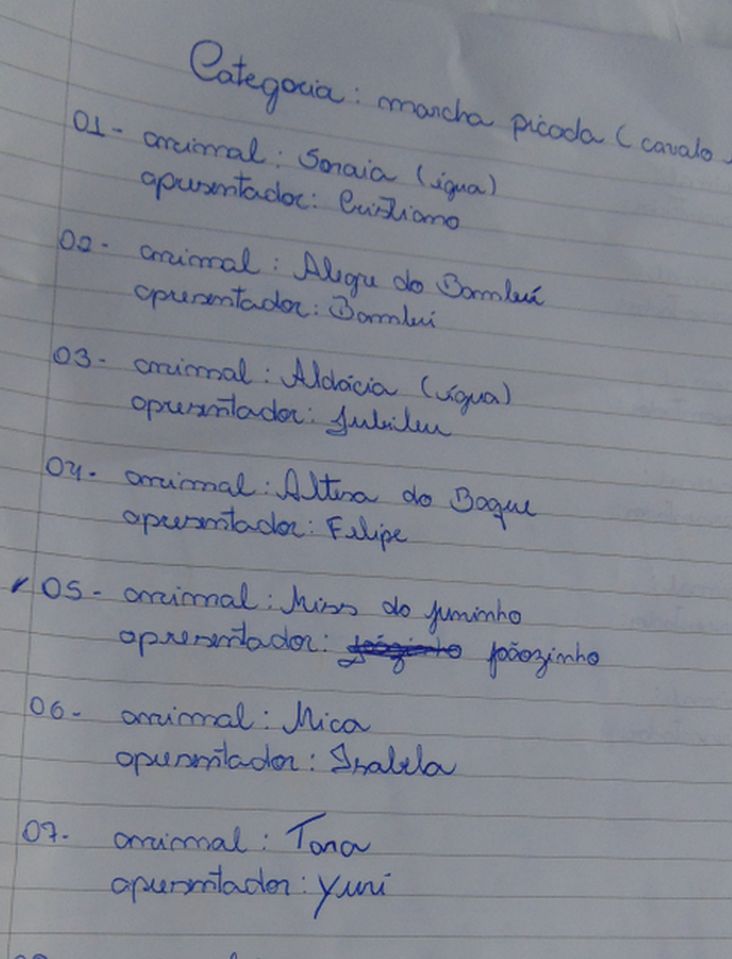 Categoria: marcha picada (cavalo
01- animal: Soraia (égua)
apresentador: Cristiano
02- animal: Alegre do Bambuí
apresentador: Bambuí
03- animal: Aldácia (égua)
apresentador: Jubileu
04- animal: Altesa do Baque
apresentador: Felipe
05- animal: Miss do Juninho
apresentador: Joãozinho
06- animal: Mica
apresentador: Isabela
07- animal:
apresentador: Yuri